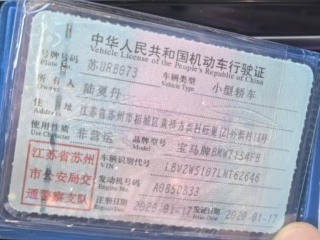 中华人民共和国机动车行驶证
Vehicle License of the People's Republic of China
号牌号码 苏URB073 车辆类型 Vehicle Type 小型轿车
所有人 陆夏丹
住址 江苏省苏州市相城区黄桥
使用性质 Use Character 非营运 品牌型号 宝马牌BMW7154FB
江苏省苏州
市公安局交
通警察支队
车辆识别代号 VIN
发动机号码 Engine No. A0850833
注册日期 2020-01-17 发证日期 2020-01-17